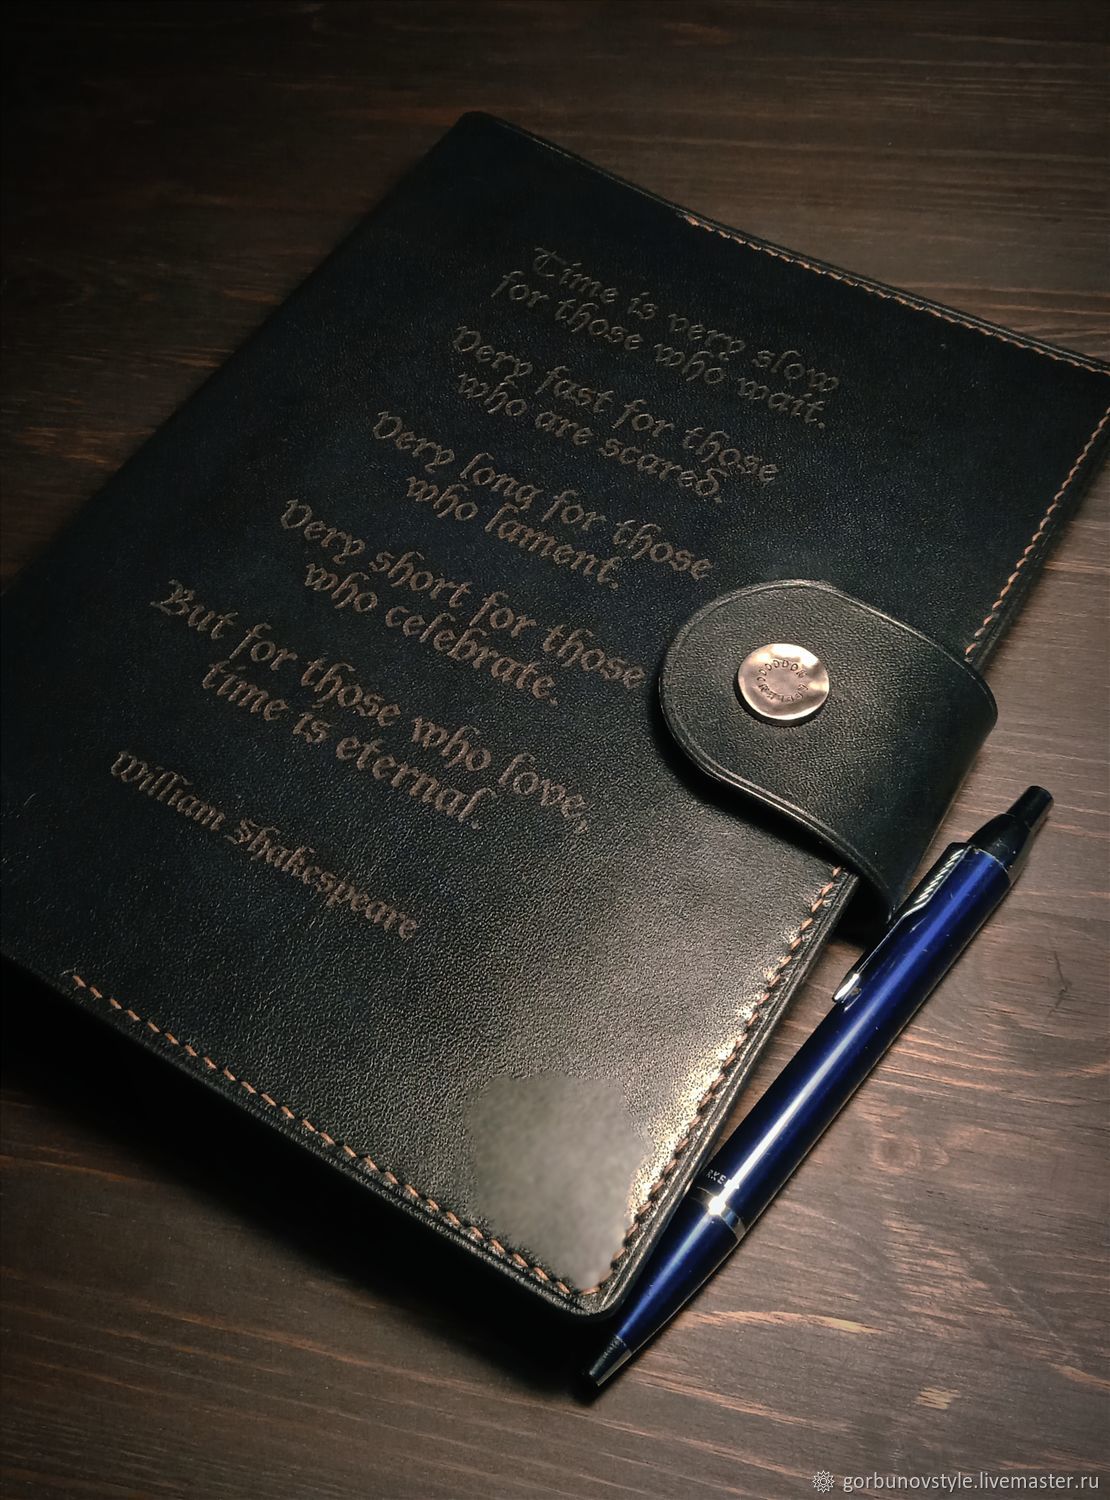 Time is very slow
for those who wait.
Very fast for those
who are scared.
Very long for those
who lament.
Very short for those
who celebrate.
But for those who love,
time is eternal.
William Shakespeare
gorbunovstyle.livemaster.ru